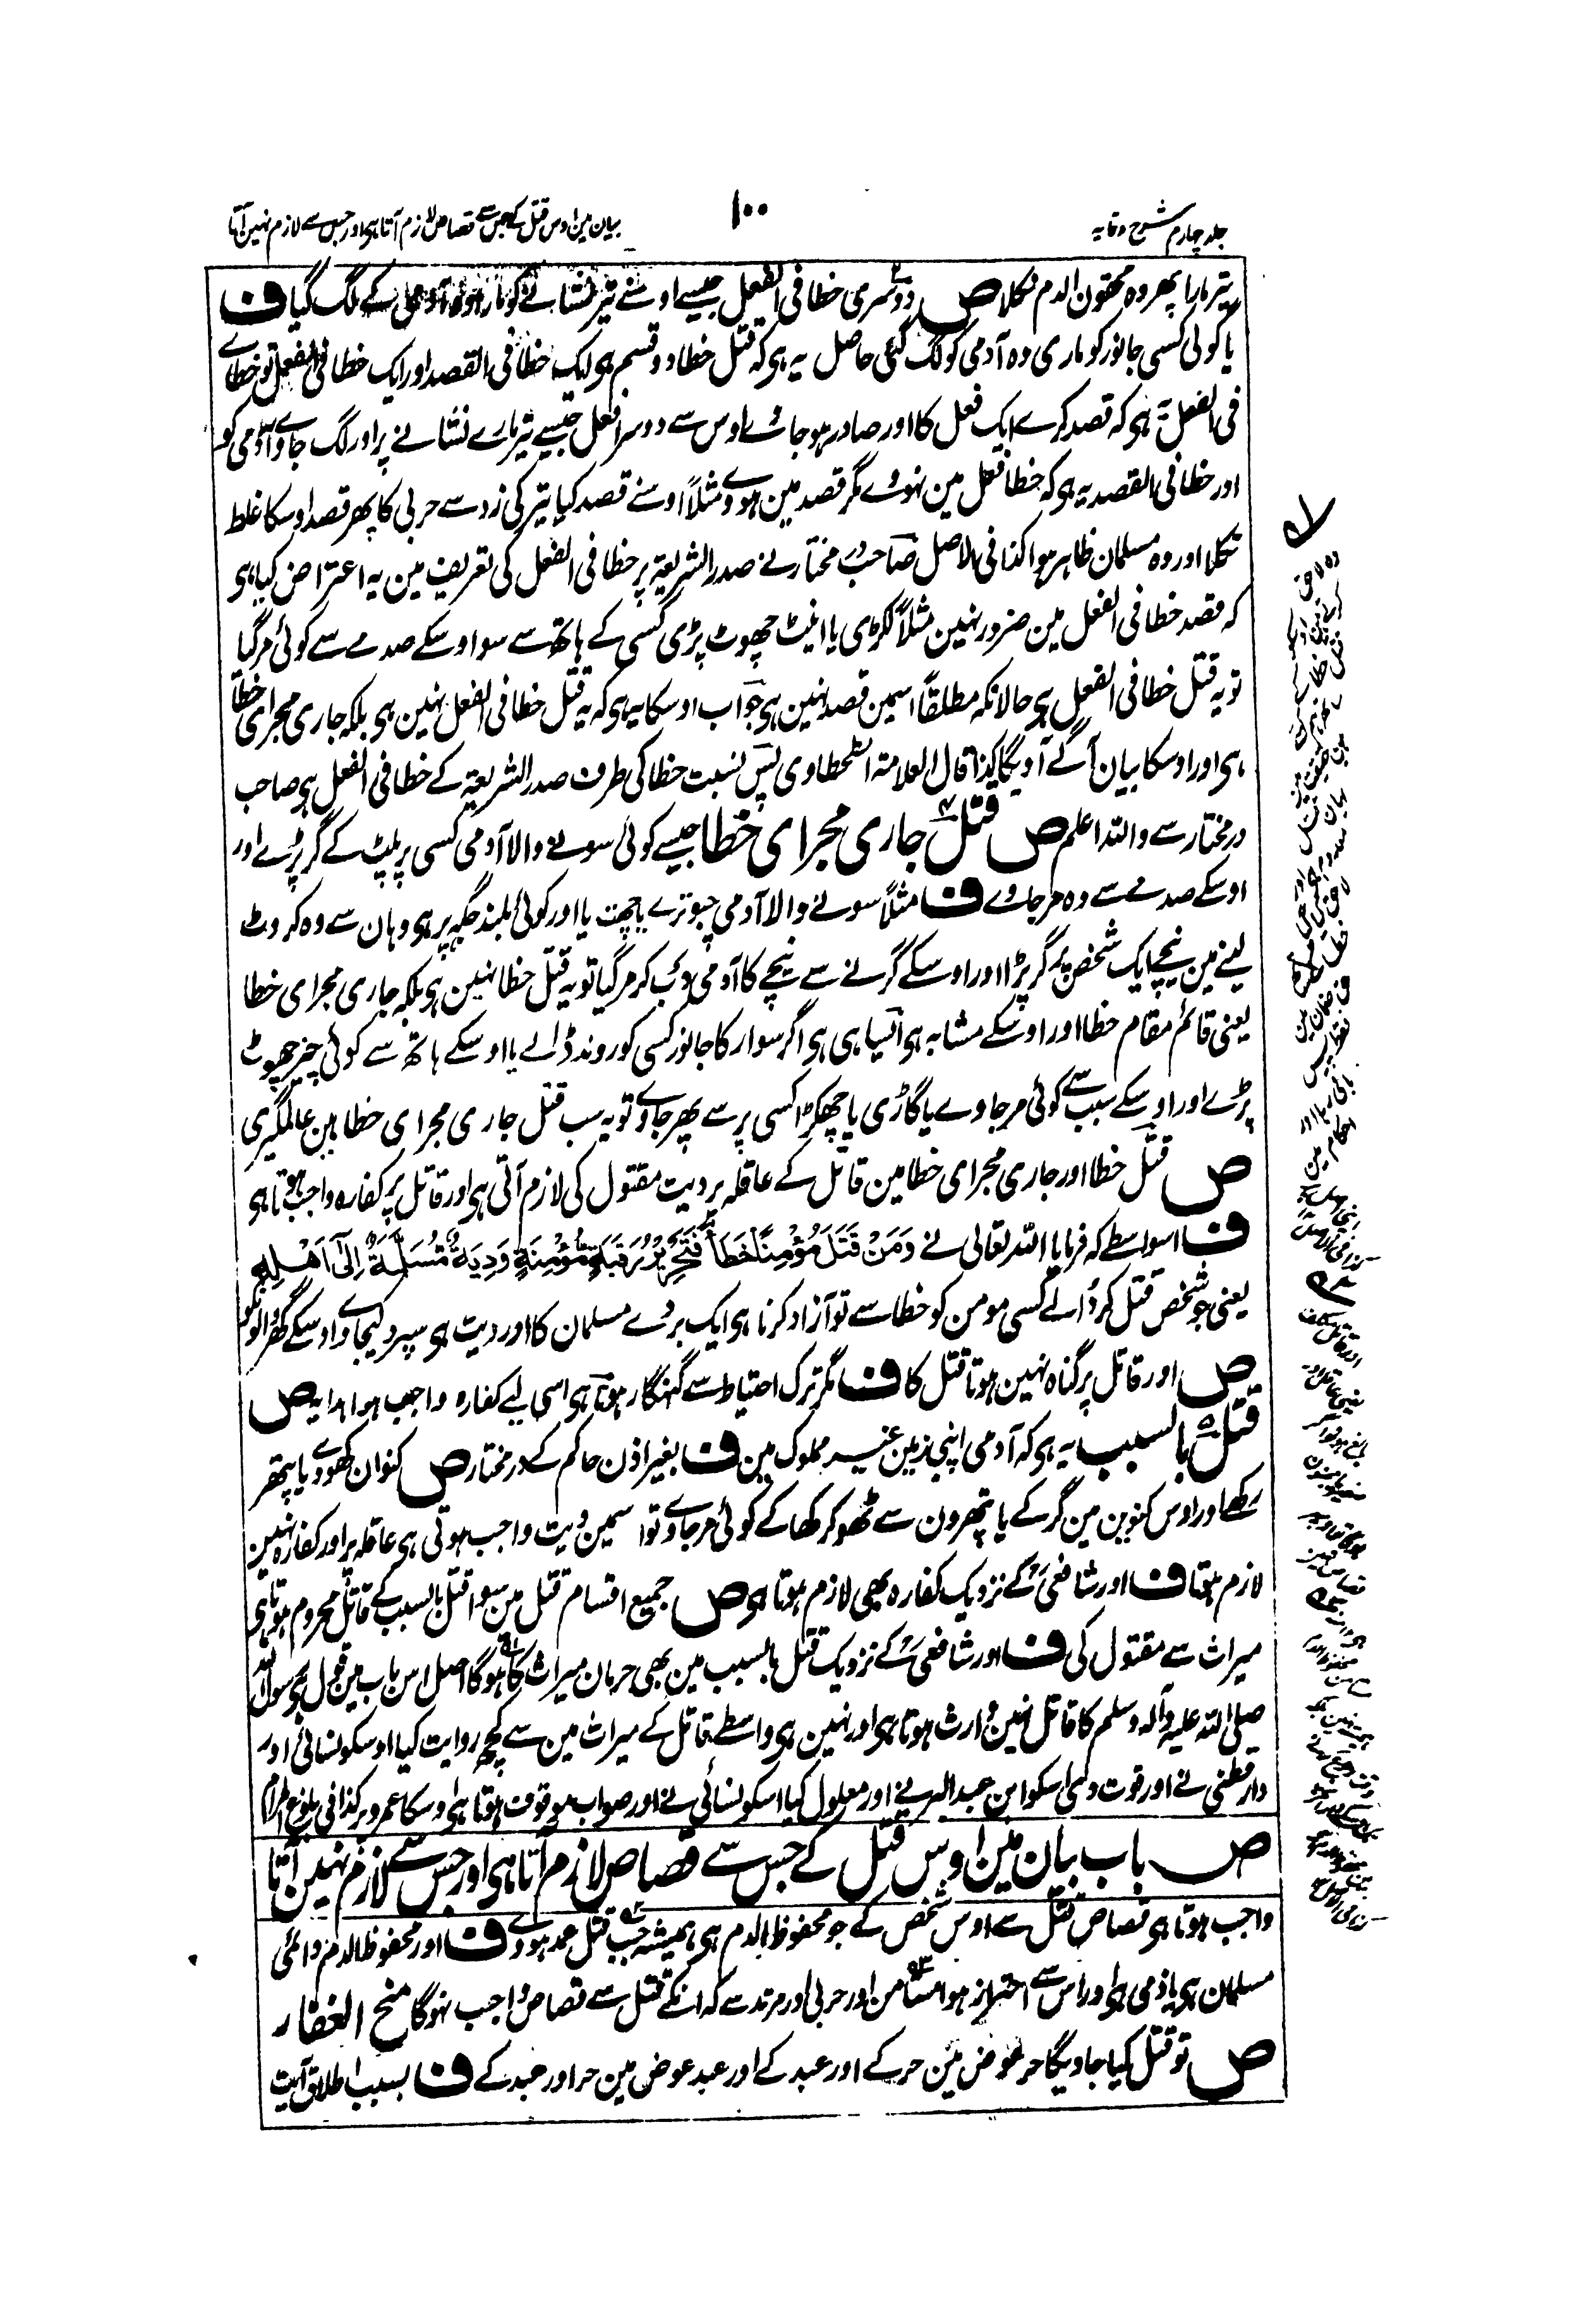 جلد چہارم شرح وقایہ
۱۰۰
بیان مین اوس قتل کے جس سے قصاص لازم آتا ہی اور جس سے لازم نہین آتا
تیر مارا پھر وہ محقون الدم نکلا ص دوسری خطا فی الفعل جیسے اوسنے تیر نشانے کو مارا وہ آدمی کے لگ گیا ف
یا گولی کسی جانور کو ماری وہ آدمی کو لگ گئی حاصل یہ ہی کہ قتل خطا دو قسم ہی ایک خطا فی القصد اور ایک خطا فی الفعل تو خطاے
فی الفعل یہ ہی کہ قصد کرے ایک فعل کا اور صادر ہوجاوے اوس سے دوسرا فعل جیسے تیر مارے نشانے پر اور لگ جاوے آدمی کو
اور خطا فی القصد یہ ہی کہ خطا فعل مین نہووے مگر قصد مین ہووے مثلاً اوسنے قصد کیا تیر کی زد سے حربی کا پھر قصد اوسکا غلط
نکلا اور وہ مسلمان ظاہر ہوا کذا فی الاصل صاحب در مختار نے صدر الشریعۃ پر خطا فی الفعل کی تعریف مین یہ اعتراض کیا ہی
کہ قصد خطا فی الفعل مین ضرور نہین مثلاً لکڑی یا اینٹ چھوٹ پڑی کسی کے ہاتھ سے سو اوسکے صدمے سے کوئی مر گیا
تو یہ قتل خطا فی الفعل ہی حالانکہ مطلقاً اسمین قصد نہین ہی جواب اوسکا یہ ہی کہ یہ قتل خطا فی الفعل نہین ہی بلکہ جاری مجرای خطا
ہی اور اوسکا بیان آگے آویگا کذا قال العلامۃ الطحطاوی پس نسبت خطا کی طرف صدر الشریعۃ کے خطا فی الفعل ہی صاحب
در مختار سے واللہ اعلم ص قتل جاری مجرای خطا جیسے کوئی سونے والا آدمی کسی پر پلٹ کے گر پڑے اور
اوسکے صدمے سے وہ مر جاوے ف مثلاً سونے والا آدمی چبوترے یا چھت یا اور کوئی بلند جگہ پر ہی وہان سے وہ کروٹ
لینے مین نیچے ایک شخص پر گر پڑا اور اوسکے گرنے سے نیچے کا آدمی دب کر مر گیا تو یہ قتل خطا نہین ہی بلکہ جاری مجرای خطا
یعنی قائم مقام خطا اور اوسکے مشابہ ہی ایسا ہی ہی اگر سوار کا جانور کسی کو روند ڈالے یا اوسکے ہاتھ سے کوئی چیز چھوٹ
پڑے اور اوسکے سبب سے کوئی مر جاوے یا گاڑی یا چھکڑا کسی پر سے پھر جاوے تو یہ سب قتل جاری مجرای خطا ہین عالمگیری
ص قتل خطا اور جاری مجرای خطا مین قاتل کے عاقلہ پر دیت مقتول کی لازم آتی ہی اور قاتل پر کفارہ واجب ہوتا ہی
ف اسواسطے کہ فرمایا اللہ تعالی نے وَمَنْ قَتَلَ مُؤْمِنًا خَطَأً فَتَحْرِيْرُ رَقَبَةٍ مُّؤْمِنَةٍ وَدِيَةٌ مُّسَلَّمَةٌ اِلٰٓى اَهْلِهٖ
یعنی جو شخص قتل کر ڈالے کسی مومن کو خطا سے تو آزاد کرنا ہی ایک بردے مسلمان کا اور دیت ہی سپرد کیجاوے اوسکے گھر والونکو
ص اور قاتل پر گناہ نہین ہوتا قتل کا ف مگر ترک احتیاط سے گنہگار ہوتا ہی اسی لیے کفارہ واجب ہوا ہدایہ ص
قتل بالسبب یہ ہی کہ آدمی اپنی زمین غیر مملوک مین ف بغیر اذن حاکم کے در مختار ص کنوان کھودے یا پتھر
رکھے اور اوس کنوین مین گر کے یا پتھرون سے ٹھوکر کھا کے کوئی مر جاوے تو اسمین دیت واجب ہوتی ہی عاقلہ پر اور کفارہ نہین
لازم ہوتا ف اور شافعی کے نزدیک کفارہ بھی لازم ہوتا ہی ص جمیع اقسام قتل مین سوا قتل بالسبب کے قاتل محروم ہوتا ہی
میراث سے مقتول کی ف اور شافعی کے نزدیک قتل بالسبب مین بھی حرمان میراث کا ہوگا اصل اس باب مین قول ہی رسول اللہ
صلی اللہ علیہ وآلہ وسلم کا قاتل نہین وارث ہوتا ہی اور نہین ہی واسطے قاتل کے میراث مین سے کچھ روایت کیا اوسکو نسائی اور
دار قطنی نے اور قوت دی اسکو ابن عبد البر نے اور معلول کیا اسکو نسائی نے اور صواب موقوف ہوتا ہی اوسکا عمرو پر کذا فی بلوغ المرام
ص باب بیان مین اوس قتل کے جس سے قصاص لازم آتا ہی اور جس سے لازم نہین آتا
واجب ہوتا ہی قصاص قتل سے اوس شخص کے جو محفوظ الدم ہی ہمیشہ جب قتل عمد ہووے ف اور محفوظ الدم دائمی
مسلمان ہی یا ذمی ہی اور اس سے احتراز ہوا مستامن اور حربی اور مرتد سے کہ انکے قتل سے قصاص واجب نہوگا منح الغفار
ص تو قتل کیا جاویگا حر عوض مین حر کے اور عبد کے اور عبد عوض مین حر اور عبد کے ف بسبب اطلاق آیت